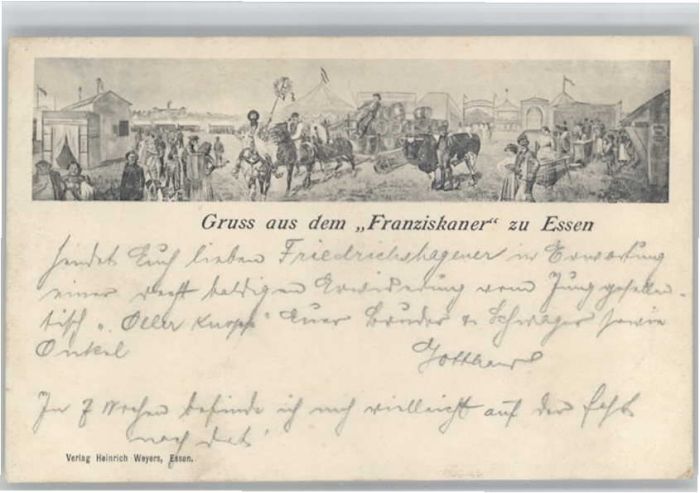 Gruss aus dem „Franziskaner“ zu Essen
sendet Euch lieben Friedrichshagener in Erwartung
einer recht baldigen Erwiderung vom Junggesellen-
tisch „Oller Knopp“ Euer Bruder & Schwager sowie
Onkel
In 7 Wochen befinde ich mich vielleicht auf der Fahrt
nach dort
Verlag Heinrich Weyers, Essen.